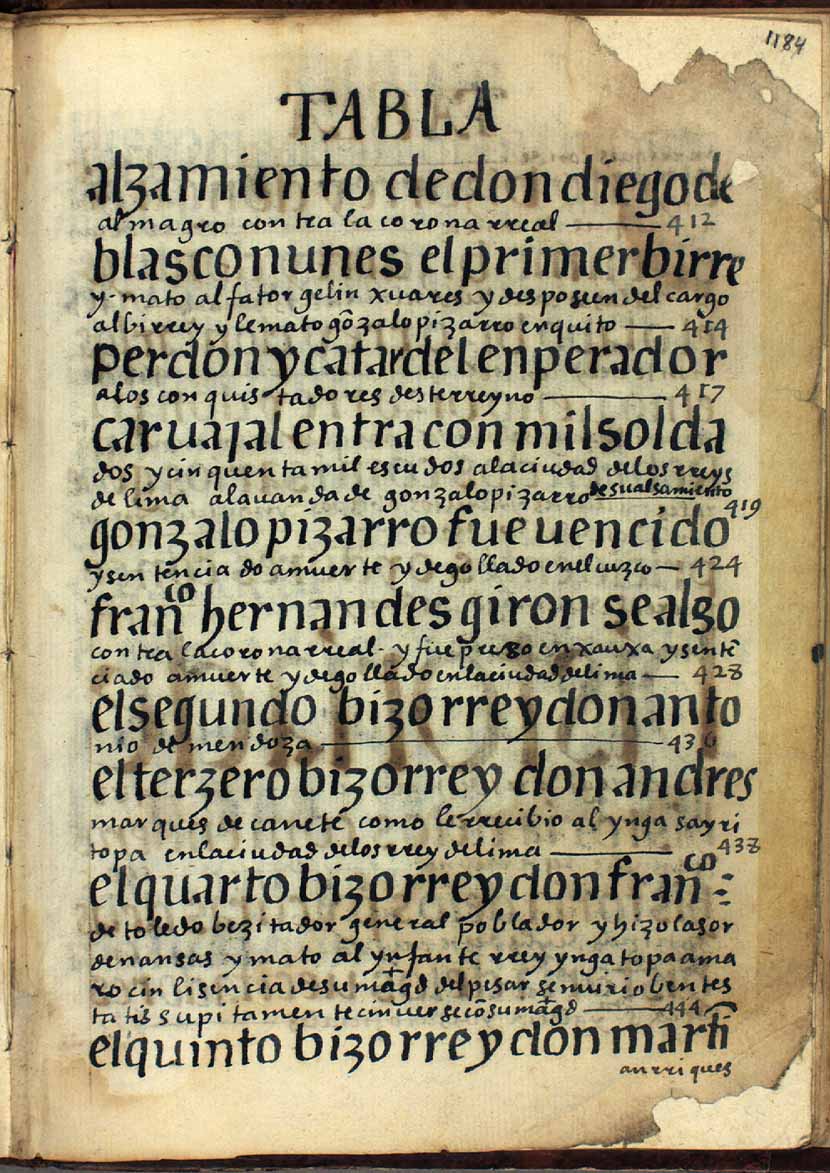 1184
TABLA
alzamiento de don diego de
almagro contra la corona rreal — 412
blasco nunes el primer birre
y · mato al fator gelin xuares y desposeen del cargo
al birrey y le mato gōzalo pizarro en quito — 414
perdon y catar del enperador
a los conquistadores desterreyno — 417
caruajal entra con mil solda
dos y cinquenta mil escudos a la ciudad de los rreys
de lima a la uanda de gonzalo pizarro de su alsamiento
419
gonzalo pizarro fue uencido
y sentencia do a muerte y degollado en el cuzco — 424
fran͂co hernandes giron se also
contra la corona rreal · y fue prezo en xauxa y sentē
ciado a muerte y degollado en la ciudad de lima — 428
el segundo bizorrey don anto
nio de mendoza — 436
el terzero bizorrey don andres
marques de canete como le rrecibio al ynga sayri
topa en la ciudad de los rrey de lima — 438
el quarto bizorrey don fran͂co :~
de toledo bezitador general poblador y hizo las or
denansas y mato al ynfante rrey ynga topa ama
ro cin lisencia de su magd del pesar se murio ben tes
ta tis supitamente cin uerse cō su magd — 444
el quinto bizorrey don martī
anrriques